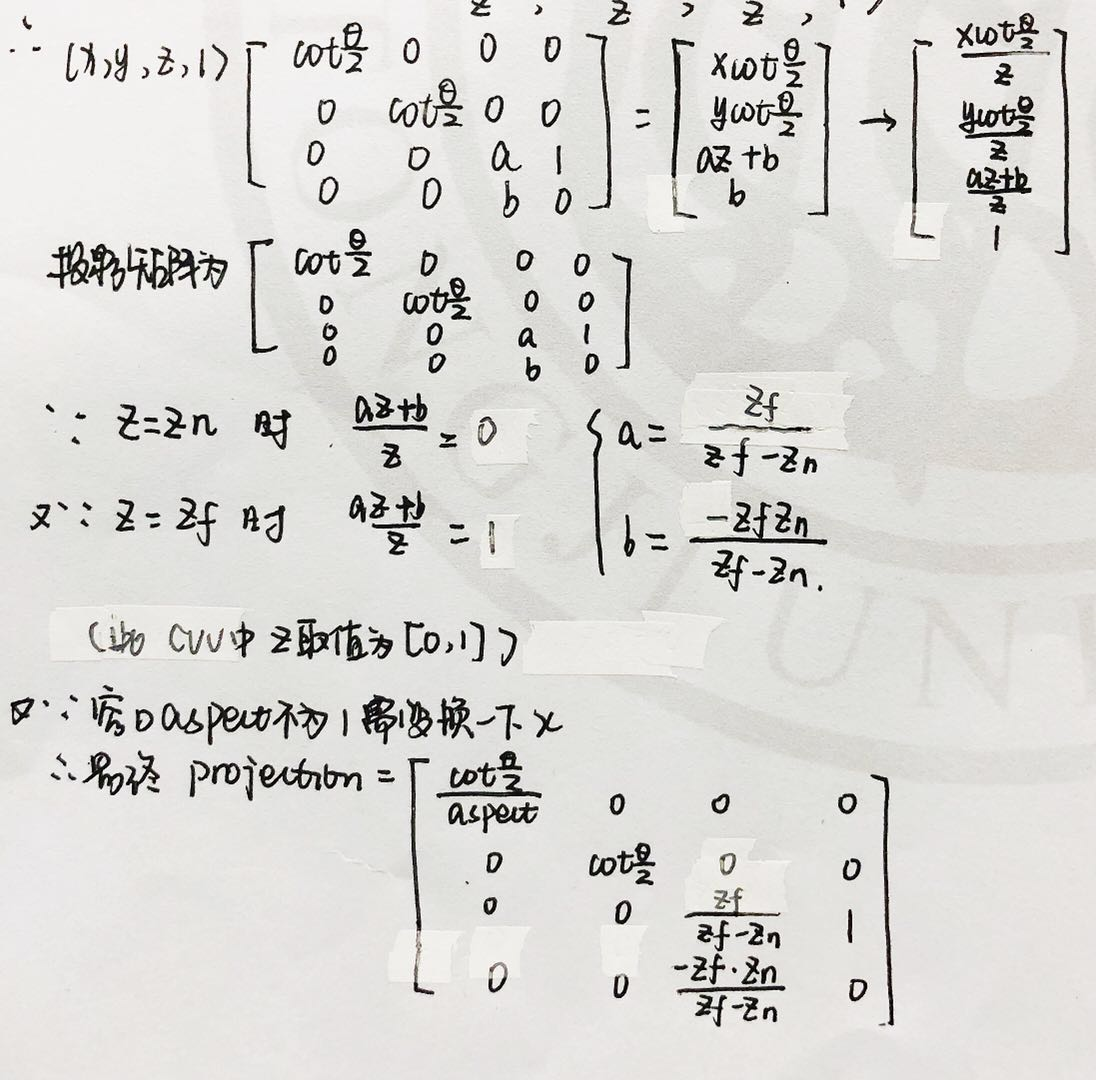 z , z , z , 1)
∴ (x,y,z,1) [cot θ/2 0 0 0; 0 cot θ/2 0 0; 0 0 a 1; 0 0 b 0] = [xcot θ/2; ycot θ/2; az+b; b] → [xcot θ/2 / z; ycot θ/2 / z; az+b / z; 1]
投影矩阵为 [cot θ/2 0 0 0; 0 cot θ/2 0 0; 0 0 a 1; 0 0 b 0]
∵ z=zn 时 az+b / z = 0 { a = zf / zf-zn
又∵ z=zf 时 az+b / z = 1 b = -zf zn / zf-zn.
( CVV中 z取值为[0,1])
又∵窗口aspect不为1需变换一下x
∴最终 projection = [cot θ/2 / aspect 0 0 0; 0 cot θ/2 0 0; 0 0 zf / zf-zn 1; 0 0 -zf·zn / zf-zn 0]
UNI